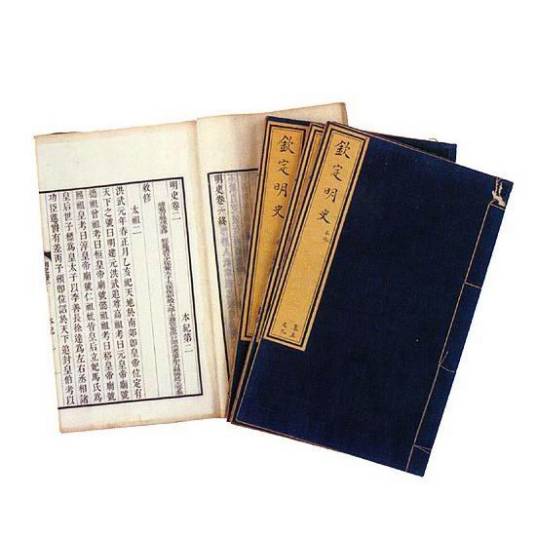 明史卷二
敕修
本紀第二
太祖二
洪武元年春正月乙亥祀天地於南郊即皇帝位定有
天下之號曰明建元洪武追尊高祖考曰元皇帝廟號
德祖曾祖考曰恒皇帝廟號懿祖祖考曰裕皇帝廟號
熙祖皇考曰淳皇帝廟號仁祖妣皆皇后立妃馬氏爲
皇后世子標爲皇太子以李善長徐達爲左右丞相諸
功臣進爵有差丙子頒即位詔於天下追封皇伯考以
欽定明史
欽定明史